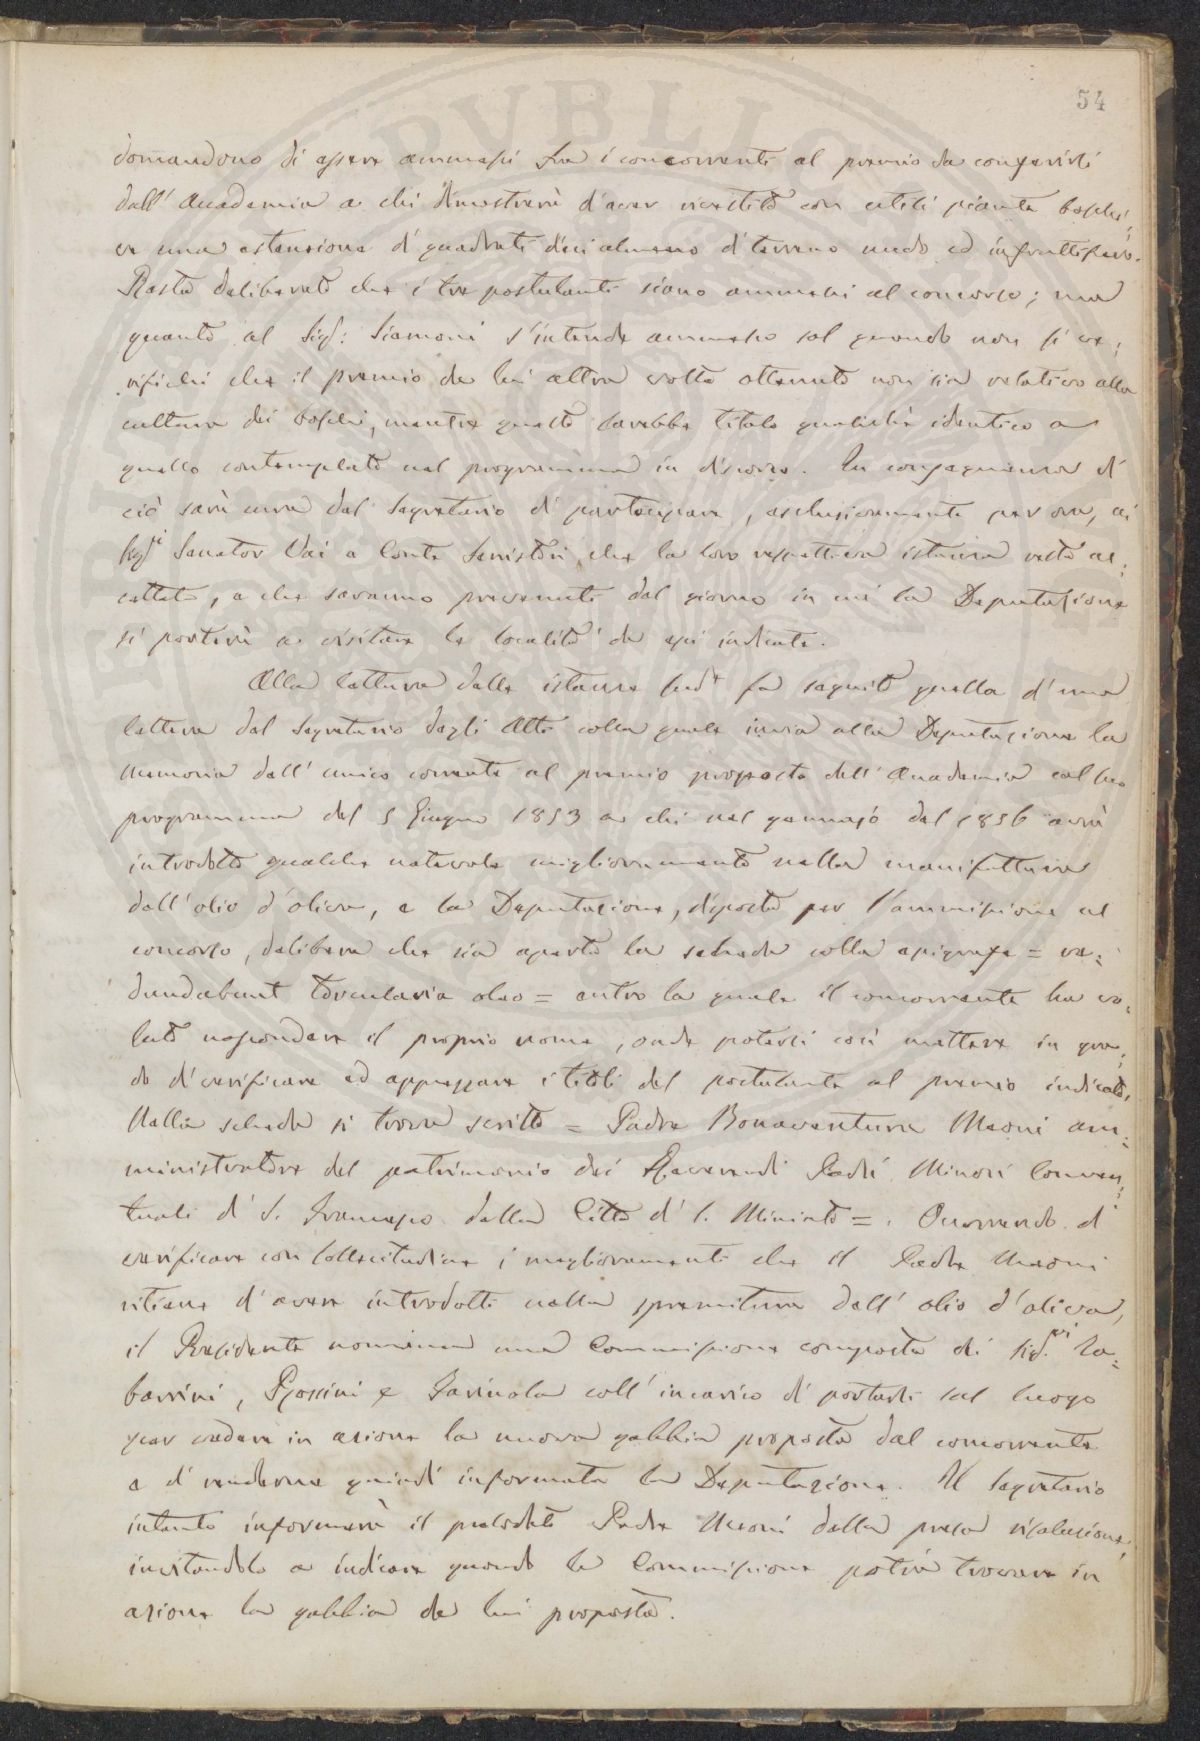 54
domandono di essere ammessi fra i concorrenti al premio da conferirsi
dall' Accademia a chi dimostrerà d'aver rivestito con utili piante boschi=
ve una estensione di quadrati dieci almeno di terreno nudo ed infruttifero.
Resta deliberato che i tre postulanti siano ammessi al concorso; ma
quanto al Sig: Siemoni s'intende ammesso sol quando non si ve=
rifichi che il premio da lui altra volta ottenuto non sia relativo alla
cultura dei boschi, mentre questo sarebbe titolo quasichè identico a
quello contemplato nel programma in discorso. In conseguenza di
ciò sarà cura del Segretario di partecipare, esclusivamente per ora, ai
Sigi Senator Vai e Conte Serristori che la loro respettiva istanza restò ac=
cettata, e che saranno prevenuti del giorno in cui la Deputazione
si porterà a visitare le località da essi indicate.
Alla lettura delle istanze sudte fa seguito quella d'una
lettera del Segretario degli Atti colla quale invia alla Deputazione la
Memoria dell' unico corrente al premio proposto dall' Accademia col suo
programma del 5 Giugno 1853 a chi nel gennajo del 1856 avrà
introdotto qualche notevole miglioramento nella manifattura
dell' olio d'oliva, e la Deputazione, disposta per l'ammissione al
concorso, delibera che sia aperta la scheda colla epigrafe = re=
dundabunt torcularia oleo = entro la quale il concorrente ha vo=
luto nascondere il proprio nome, onde potersi così mettere in gra=
do di verificare ed apprezzare i titoli del postulante al premio indicato.
Nella scheda si trova scritto = Padre Bonaventura Meoni am=
ministratore del patrimonio dei Reverendi Padri Minori Conven=
tuali di S. Francesco della Città di S. Miniato =. Occorrendo di
verificare con sollecitudine i miglioramenti che il Padre Meoni
ritiene d'avere introdotti nella spremitura dell' olio d'oliva,
il Presidente nomina una Commissione composta dei Sigri La=
barrini, Rossini e Farinola coll' incarico di portarsi sul luogo
per vedere in azione la nuova gabbia proposta dal concorrente
e di renderne quindi informata la Deputazione. Il Segretario
intanto informerà il prelodato Padre Meoni della presa risoluzione,
invitandolo a indicare quando la Commissione potrà trovare in
azione la gabbia da lui proposta.